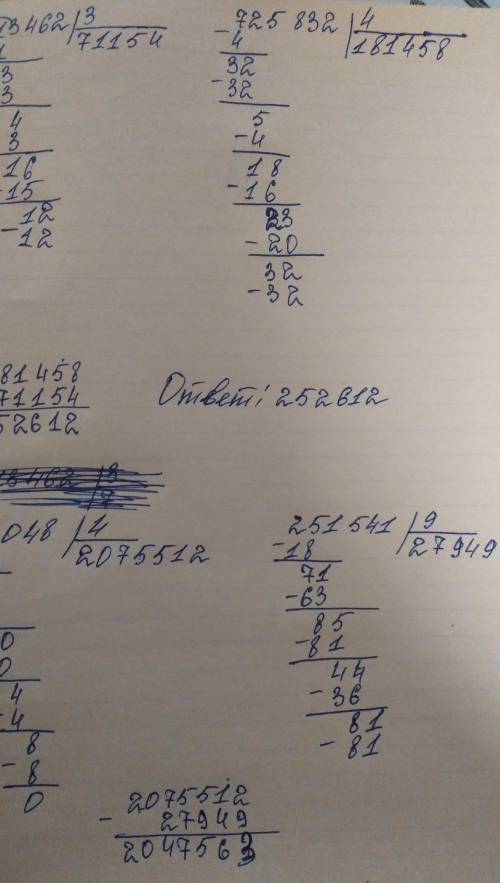 13462 | 3
71154
3
3
4
3
16
-15
12
-12
725 832 | 4
181458
-4
32
-32
5
-4
18
-16
23
-20
32
-32
81458
71154
52612
Ответ: 252612
048 | 4
2075512
0
0
4
-4
8
-8
0
251 541 | 9
27949
-18
71
-63
85
-81
44
-36
81
-81
2075512
- 27949
2047563